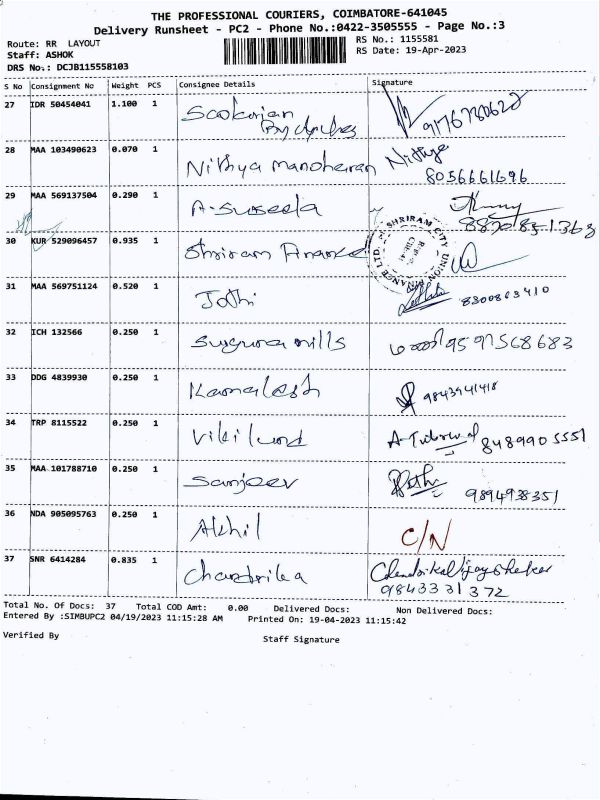 THE PROFESSIONAL COURIERS, COIMBATORE-641045
Delivery Runsheet - PC2 - Phone No.:0422-3505555 - Page No.:3
Route: RR LAYOUT
RS No.: 1155581
Staff: ASHOK
RS Date: 19-Apr-2023
DRS No.: DCJB115558103
S No Consignment No Weight PCS Consignee Details Signature
27 IDR 50454041 1.100 1
28 MAA 103490623 0.070 1 Nithya manoharan Nithya
8056661696
29 MAA 569137504 0.290 1 A-Suseela
30 KUR 529096457 0.935 1 Shriram Finance
SHRIRAM CITY UNION FINANCE LTD.
31 MAA 569751124 0.520 1 Jothi 8300863410
32 ICH 132566 0.250 1 Suguna mills 9597568683
33 DDG 4839930 0.250 1 Kamalesh 9843941418
34 TRP 8115522 0.250 1 8489905551
35 MAA 101788710 0.250 1 Sanjeev
9894938351
36 NDA 905095763 0.250 1 Akhil C/N
37 SNR 6414284 0.835 1 Chandrika
9843331372
Total No. Of Docs: 37 Total COD Amt: 0.00 Delivered Docs: Non Delivered Docs:
Entered By :SIMBUPC2 04/19/2023 11:15:28 AM Printed On: 19-04-2023 11:15:42
Verified By Staff Signature